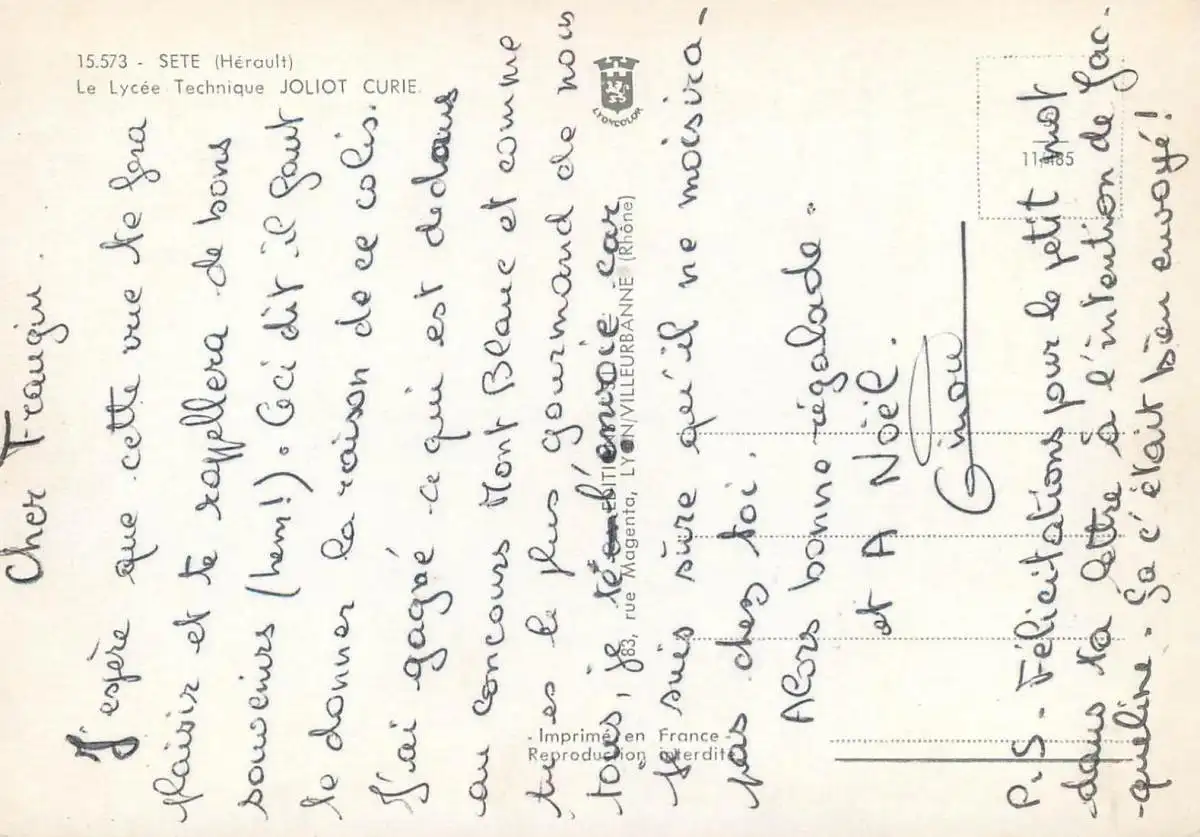 15.573 - SETE (Hérault)
Le Lycée Technique JOLIOT CURIE.
LYONCOLOR
EDITION
83, rue Magenta, LYON/VILLEURBANNE (Rhône)
- Imprimé en France -
Reproduction interdite
Cher Frangin.
J'espère que cette vue te fera
plaisir et te rappellera de bons
souvenirs (hem!). Ceci dit il faut
te donner la raison de ce colis.
J'ai gagné ce qui est dedans
au concours Mont Blanc et comme
tu es le plus gourmand de nous
tous, je te l'envoie car
je suis sûre qu'il ne moisira-
pas chez toi.
Alors bonne régalade.
et A NOËL.
Ginou
P.S - Félicitations pour le petit mot
dans ta lettre à l'intention de Jac-
-queline - Ça c'était bien envoyé!